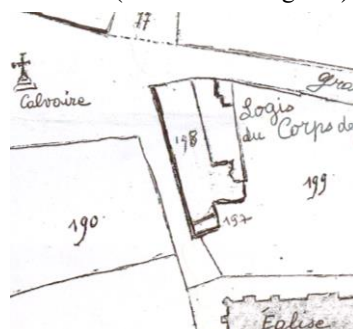 77
gra
Calvaire
Logis
du Corps de
198
199
190
197
Eglise